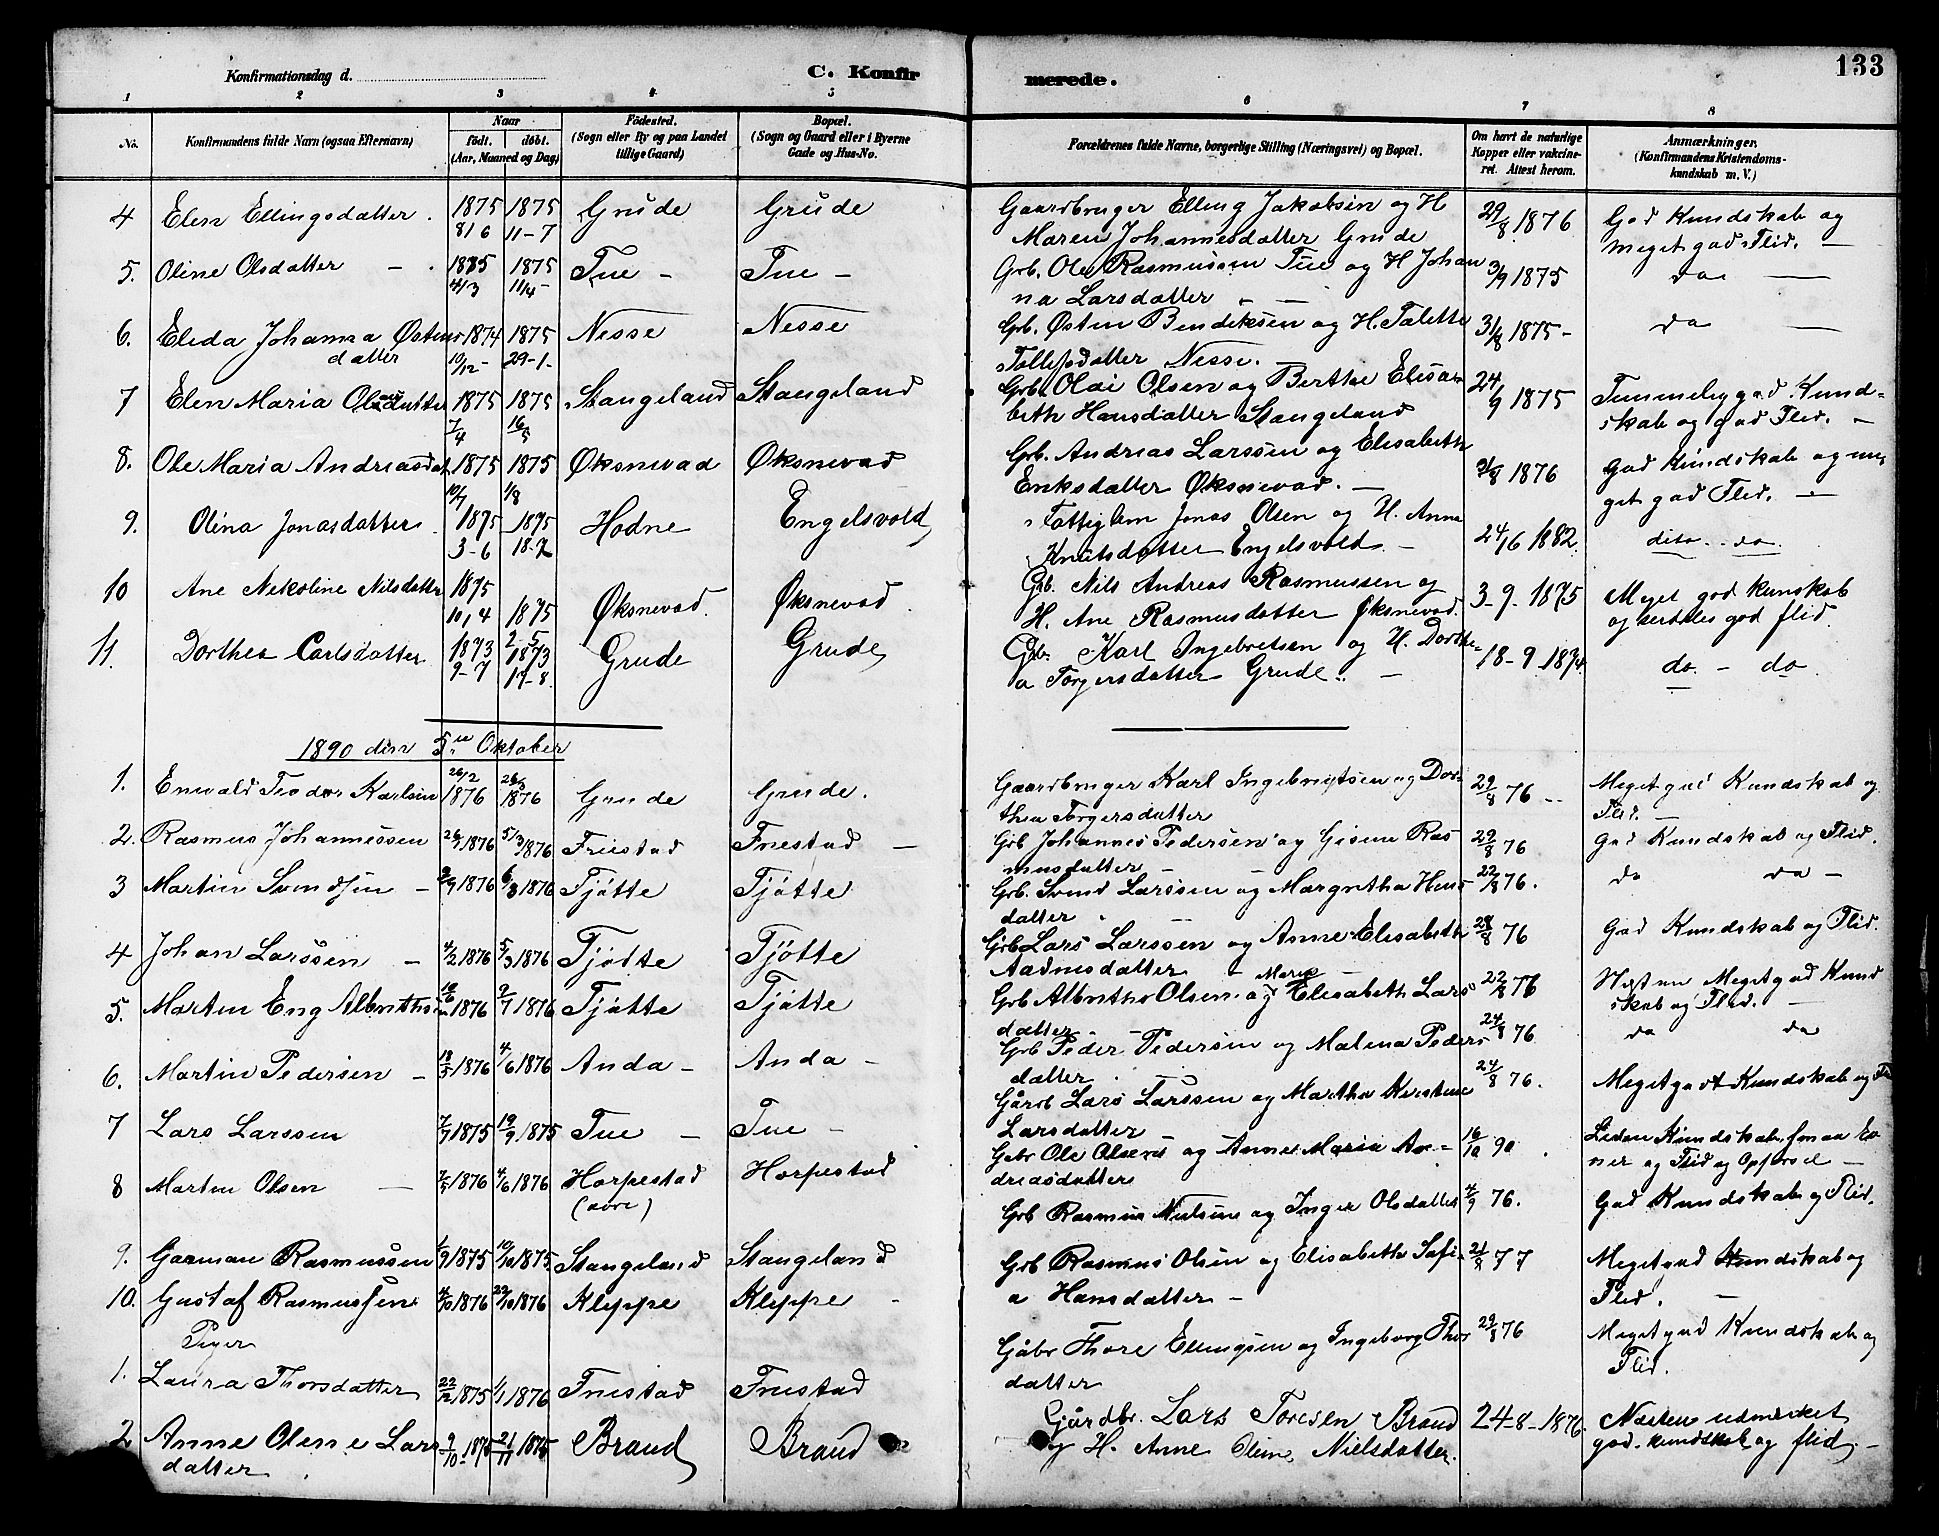 133
Konfirmationsdag d.
C. Konfirmerede.
1 2 3 4 5 6 7 8
No.
Konfirmandens fulde Navn (ogsaa Efternavn)
Naar
födt. döbt.
(Aar, Maaned og Dag)
Födested.
(Sogn eller By og paa Landet
tillige Gaard)
Bopæl.
(Sogn og Gaard eller i Byerne
Gade og Hus-No.
Forældrenes fulde Navne, borgerlige Stilling (Næringsvei) og Bopæl.
Om havt de naturlige
Kopper eller vakcine-
ret. Attest herom.
Anmærkninger.
(Konfirmandens Kristendoms-
kundskab m. V.)
4 Elen Ellingsdatter. 1875 1875 Grude Grude Gaardbruger Elling Jakobsen og H 29/8 1876 God Kundskab og
8/6 11-7 Maren Johannesdatter Grude meget god Flid. —
5. Oline Olsdatter - . 1875 1875 Tue - Tue - Grb. Ole Rasmussen Tue og H Johan 3/9 1875 do —
4/3 11/4 na Larsdatter
6. Elida Johanna Østens 1874 1875 Nesse Nesse Grb. Østen Bendiksen og H. Talette 31/8 1875 - do —
datter 10/12- 29-1- Tollefsdatter Nesse.
7 Elen Maria Olaidatter 1875 1875 Stangeland Stangeland Grb. Olai Olsen og Berthe Elisa 24/9 1875 Temmelig god Kund-
7/4 16/5 beth Hansdatter Stangeland skab og god Flid. -
8. Ole Maria Andreasdat 1875 1875 Øksnevad Øksnevad Grb. Andreas Larssen og Elisabeth 31/8 1876 God Kundskab og me
10/7 1/8 Eriksdatter Øksnevad. — get god Flid. —
9. Olina Jonasdatter 1875 1875 Hodne Engelsvold Fattiglem Jonas Olsen og H. Anna 24/6 1882. dito do
3-6 18-7 Knutsdatter Engelsvold -
10 Ane Nekoline Nilsdatter 1875 Øksnevad. Øksnevad. Grb. Nils Andreas Rasmussen og 3-9-1875 Meget god kunskab
10,4 1875 H. Ane Rasmusdatter Øksnevad. og særdeles god flid.
2-5
11. Dorthea Carlsdatter 1873 1873 Grude Grude Grb. Karl Ingebretsen og H. Dorthe- 18-9-1874. do - do
9-7 17-8. a Torgersdatter Grude. -
1890 den 5te Oktober
1. Enevald Teodor Karlsen 26/2 1876 26/3 1876 Grude Grude. Gaardbruger Karl Ingebrigtsen og Dor- 29/8 76 - Meget god Kundskab og
thea Torgersdatter Flid. -
2. Rasmus Johannessen 1876 5/3 1876 Friestad Friestad - Grb Johannes Pedersen og Gisine Ras 29/8 76 God Kundskab og Flid.
musdatter -
3 Martin Svendsen - 1876 1876 Tjøtte Tjøtte Grb. Svend Larssen og Margretha Hans 22/8 76. do do -
datter
4 Johan Larssen - 4/2 1876 5/3 1876 Tjøtte Tjøtte Grb Lars Larssen og Anne Elisabeth 76 God Kundskab og Flid.
Aadnesdatter -
5. Martin Eng Albrethsen 1876 9/7 1876 Tjøtte Tjøtte Grb Albretha Olsen og Maria Elisabeth Lars 22/8 76 Næsten Meget god Kund
datter skab og Flid. -
6. Martin Pedersen - 18/5 1876 4/6 1876 Anda - Anda - Grb Peder Pedersen og Malena Peders 24/8 76 do do
datter
7 Lars Larssen 2/7 1875 19/9 1875 Tue - Tue - Gårdb Lars Larssen og Martha Kristine 24/8 76. Meget godt Kundskab og Fl
Larsdatter
8 Martin Olsen - 1876 4/6 1876 Horpestad Horpestad Gabr Ole Olsen og Anne Maria An- 16/10 90. Liden Kundskab, smaa Ev
(øvre) dreasdatter ner og Flid og Opførsel -
9. Garman Rasmussen 1/9 1875 10/10 1875 Stangeland Stangeland Grb Rasmus Nielsen og Inger Olsdatter 4/9 76. God Kundskab og Flid.
10. Gustaf Rasmussen 4/10 1876 22/10 1876 Kleppe Kleppe - Grb Rasmus Olsen og Elisabeth Sofi- 21/8 77 Meget god Kundskab og
a Hansdatter - Flid. -
Piger
1. Laura Thorsdatter 22/12 1875 1/1 1876 Friestad Friestad Gåbr Thore Ellingsen og Ingeborg Thor 29/8 76 Meget god Kundskab og
datter Flid.
2 Anne Oline Lars 9/10 1875 21/11 1875 Braud Braud Gårdbr. Lars Toresen Braud 24-8-1876. Næsten udmærket
datter og H. Anne Oline Nielsdatter. god kundskab og flid. -